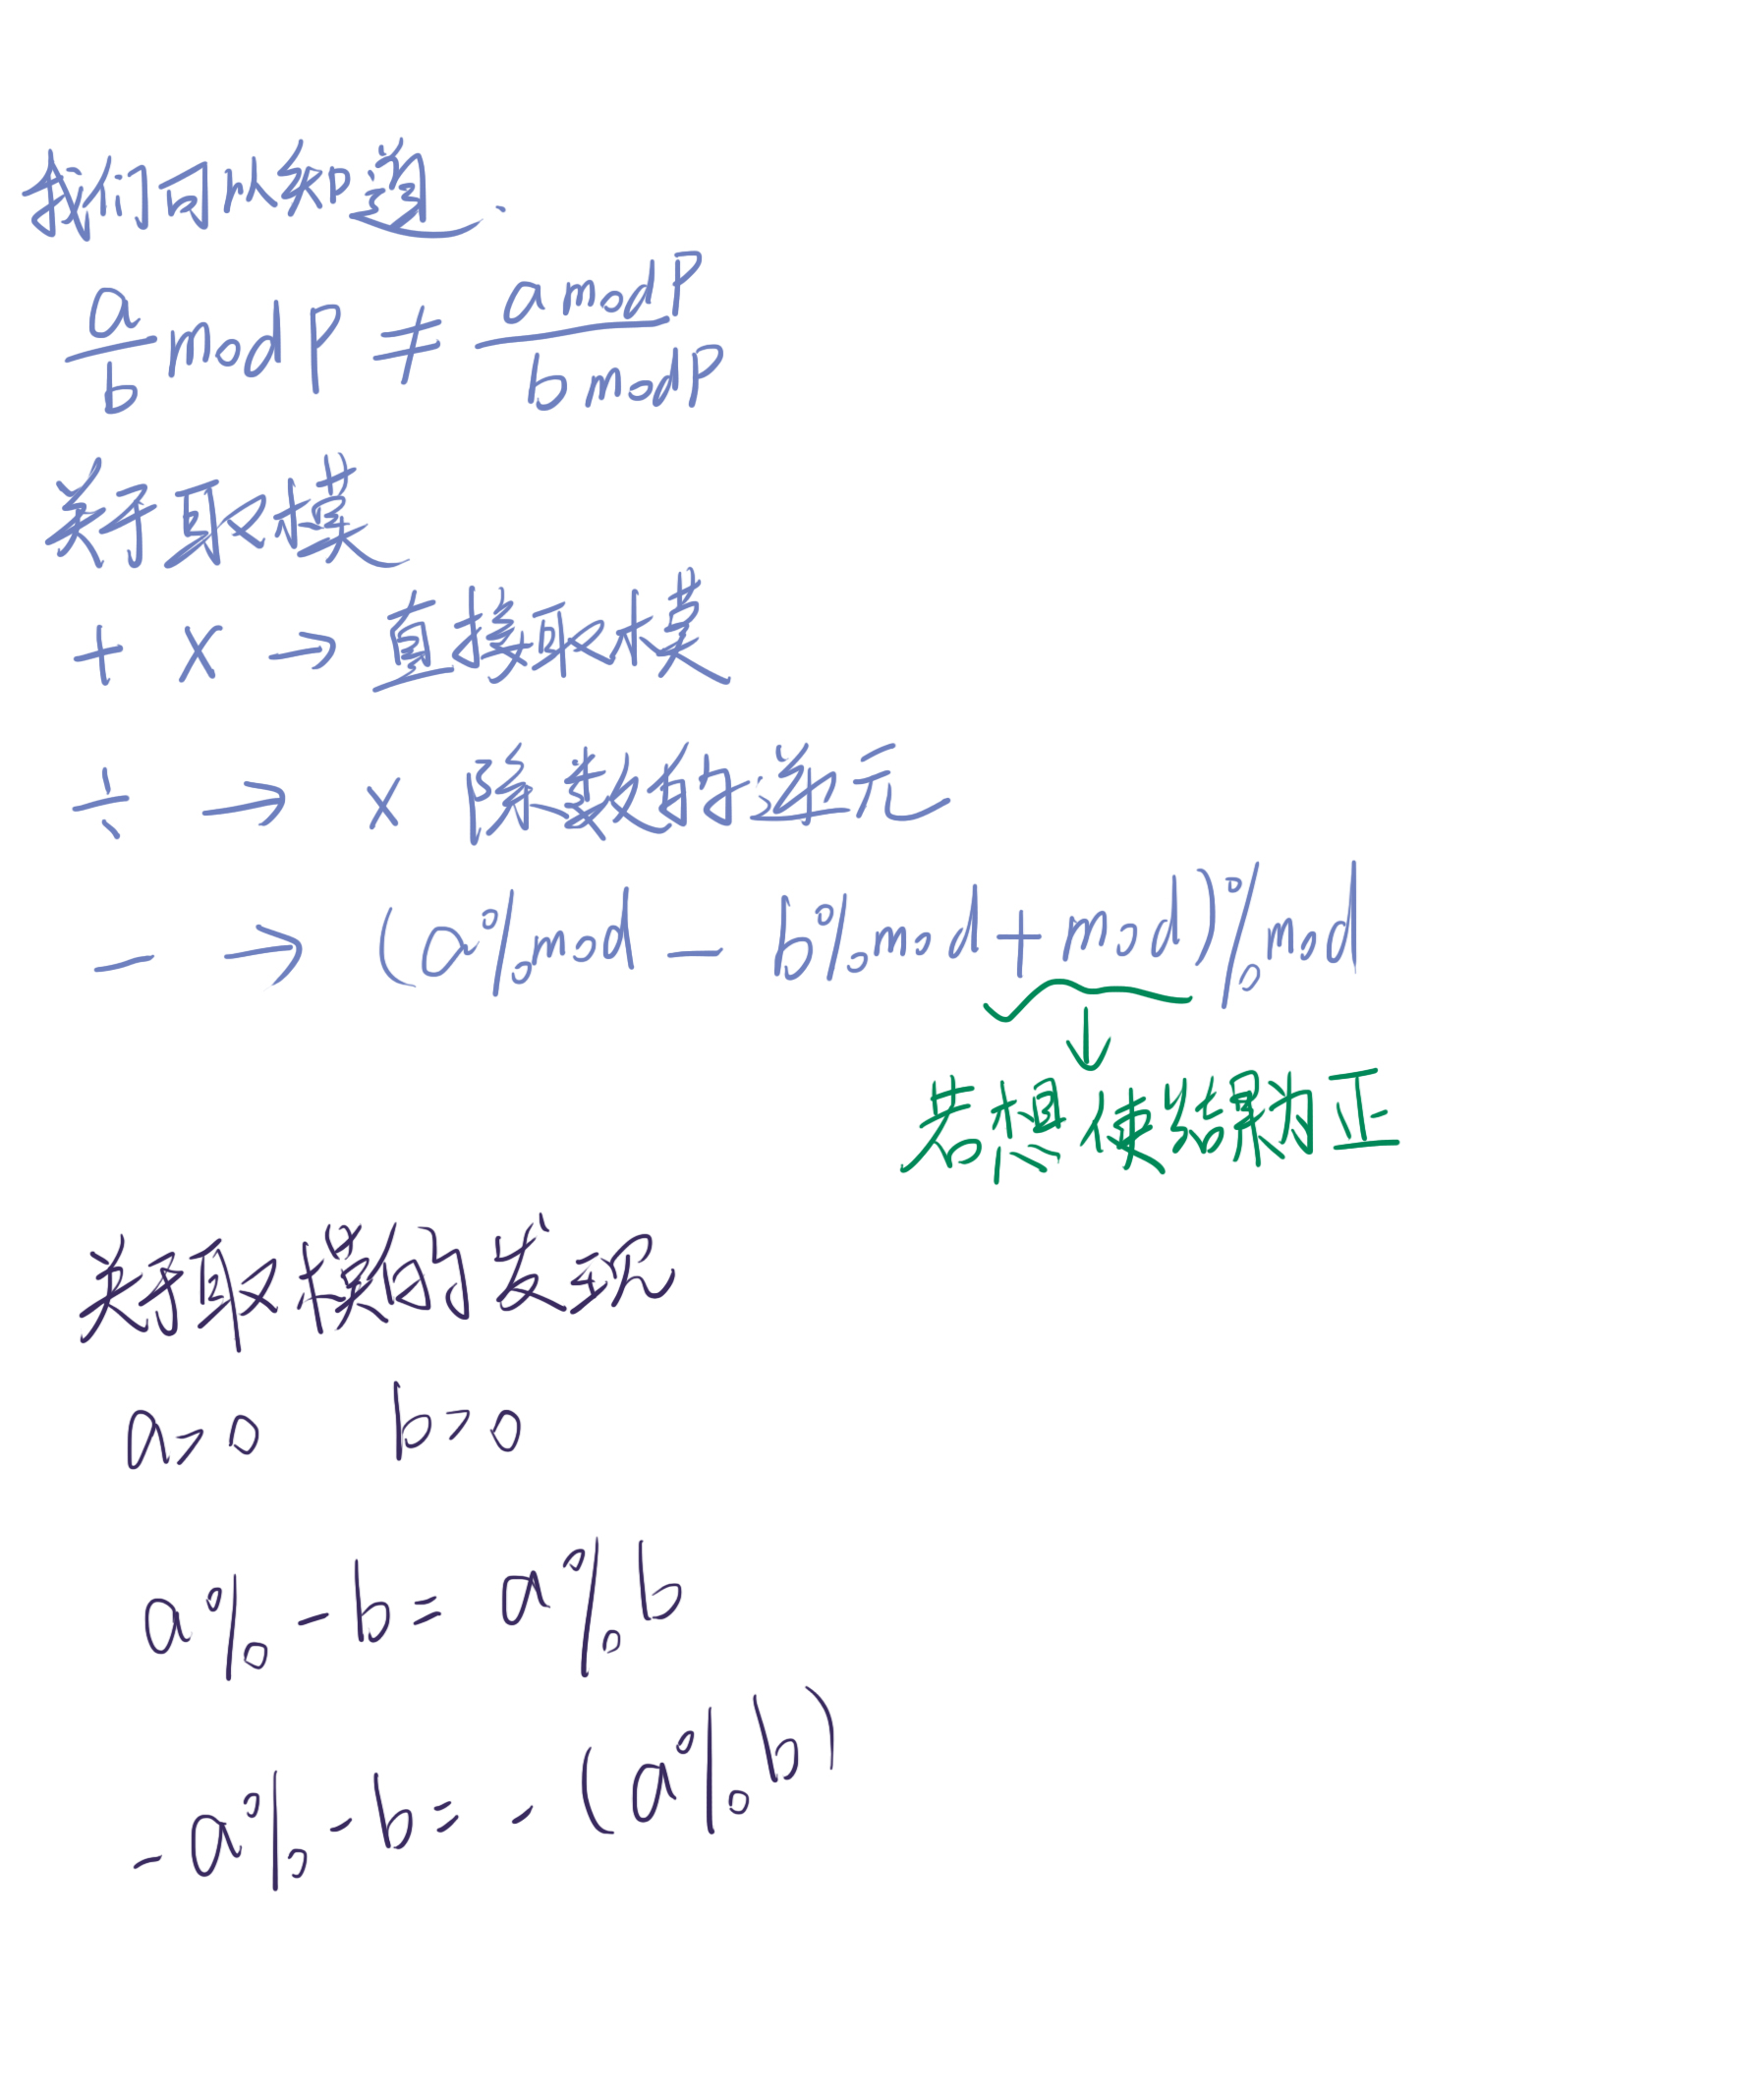 我们可以知道.
a/b mod P ≠ (a mod P)/(b mod P)
关于取模
+ × → 直接取模
÷ → × 除数的逆元
- → (a%mod - b%mod + mod)%mod
若想使结果为正
关于取模的发现
a>0 b>0
a% -b = a%b
-a% -b = -(a%b)